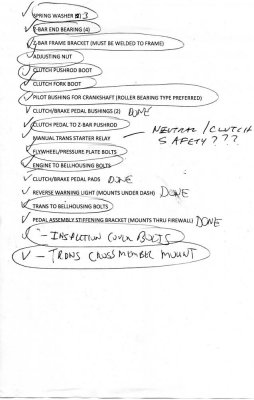 ✓ SPRING WASHER (2) 3
✓ Z-BAR END BEARING (4)
✓ Z-BAR FRAME BRACKET (MUST BE WELDED TO FRAME)
✓ ADJUSTING NUT
✓ CLUTCH PUSHROD BOOT
✓ CLUTCH FORK BOOT
✓ PILOT BUSHING FOR CRANKSHAFT (ROLLER BEARING TYPE PREFERRED)
✓ CLUTCH/BRAKE PEDAL BUSHINGS (2) DONE
✓ CLUTCH PEDAL TO Z-BAR PUSHROD
MANUAL TRANS STARTER RELAY - NEUTRAL/CLUTCH SAFETY???
✓ FLYWHEEL/PRESSURE PLATE BOLTS
✓ ENGINE TO BELLHOUSING BOLTS
✓ CLUTCH/BRAKE PEDAL PADS DONE
✓ REVERSE WARNING LIGHT (MOUNTS UNDER DASH) DONE
✓ TRANS TO BELLHOUSING BOLTS
✓ PEDAL ASSEMBLY STIFFENING BRACKET (MOUNTS THRU FIREWALL) DONE
✓ - INSPECTION COVER BOLTS
✓ - TRANS CROSSMEMBER MOUNT